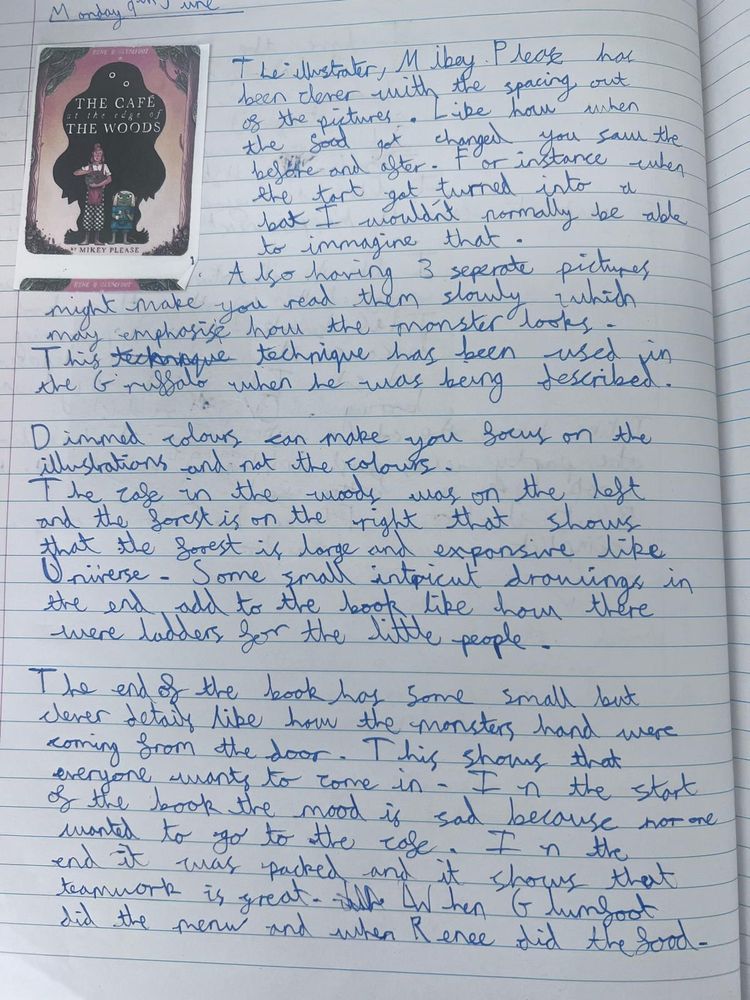 Monday 9th June
RENE & GLUMFOOT
THE CAFÉ
at the edge of
THE WOODS
BY MIKEY PLEASE
RENE & GLUMFOOT
The illustrater, Mikey Please has
been clever with the spacing out
of the pictures. Like how when
the food got changed you saw the
before and after. For instance when
the tart got turned into a
bat I wouldn't normally be able
to immagine that.
Also having 3 seperate pictures
might make you read them slowly which
may emphasise how the monster looks.
This technique has been used in
the Gruffalo when he was being described.
Dimmed colours can make you focus on the
illustrations and not the colours.
The cafe in the woods was on the left
and the forest is on the right that shows
that the forest is large and expansive like
Universe. Some small intricut drawings in
the end add to the book like how there
were ladders for the little people.
The end of the book has some small but
clever details like how the monsters hand were
coming from the door. This shows that
everyone wants to come in. In the start
of the book the mood is sad because one
wanted to go to the cafe. In the
end it was packed and it shows that
teamwork is great. When Glumfoot
did the menu and when Renee did the food.